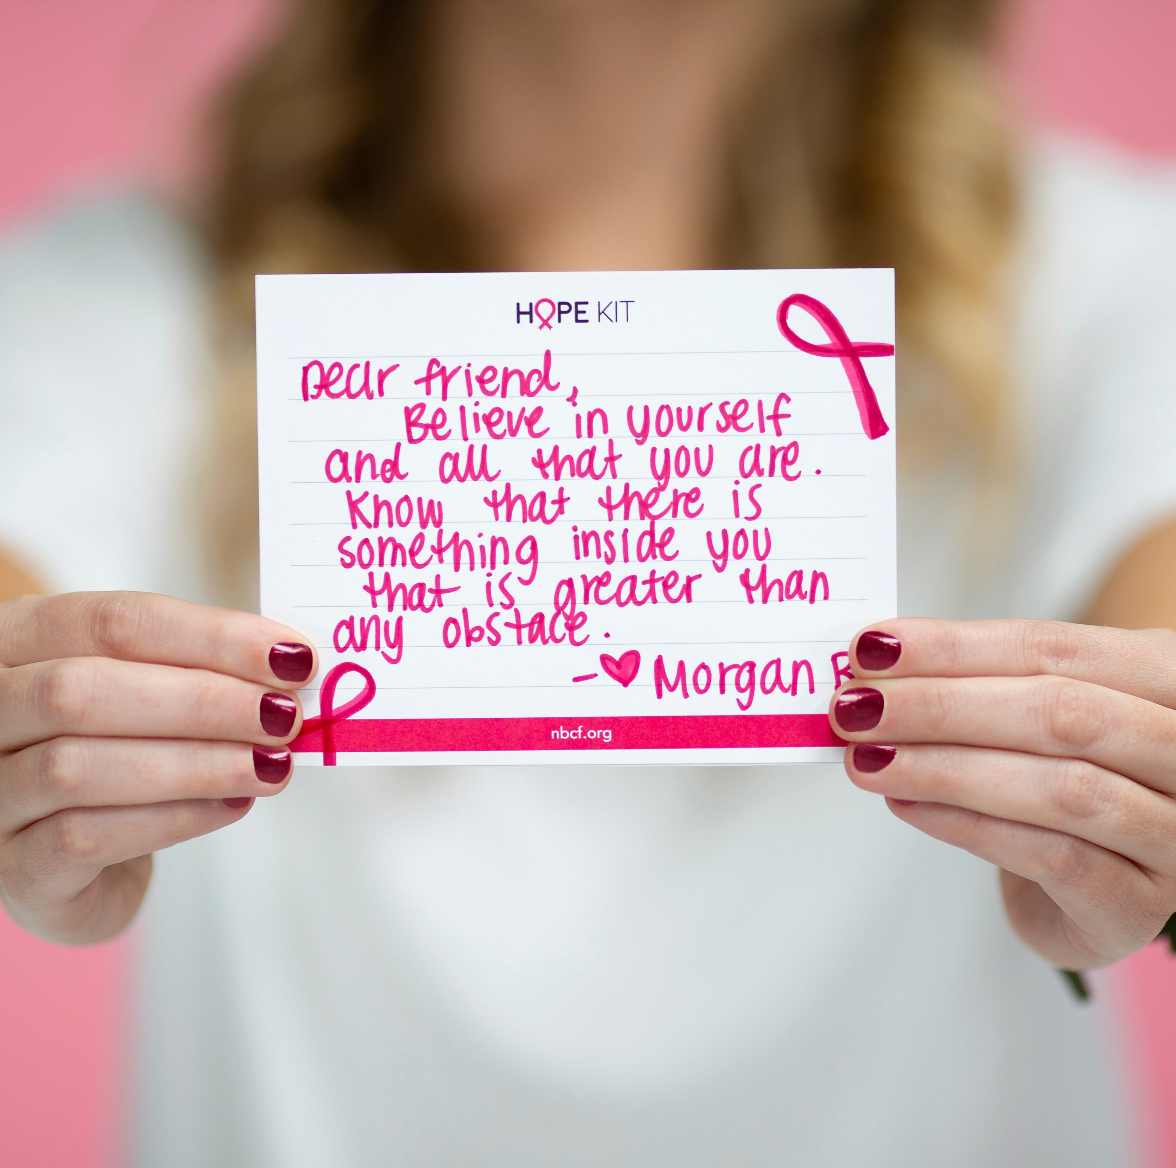 HOPE KIT
Dear friend,
Believe in yourself
and all that you are.
Know that there is
something inside you
that is greater than
any obstace.
- Morgan R
nbcf.org